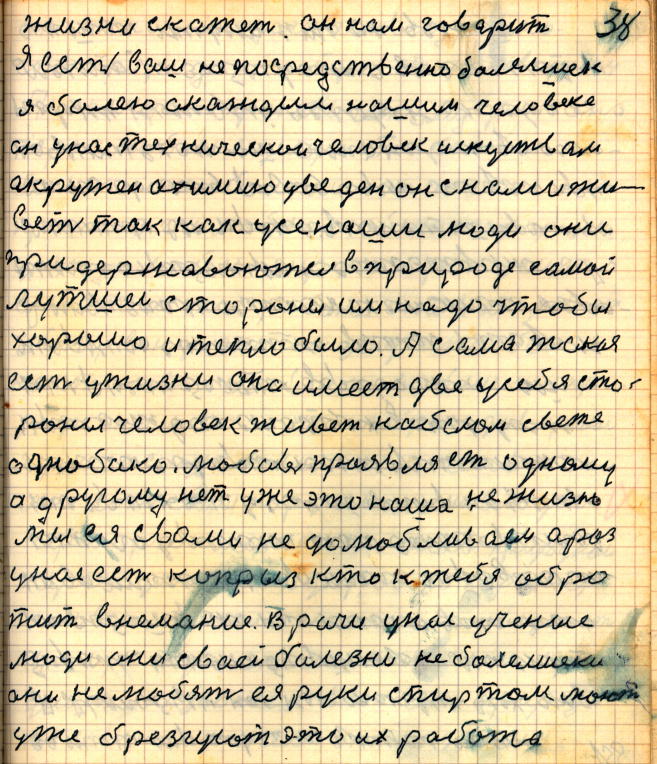 38
жизни скажет. он нам говарит
я есть ваш не посредственно болельшек
я болею окаждым нашим человеке
он унас технической человек искуством
окружен ахимию уведен он снами жи-
вет так как усе наши люди они
придержавоются в природе самой
лутшеи стороны им надо чтобы
хорошо и тепло было. А сама такая
ест ужизни она имеет две усебя сто-
роны человек живет набелом свете
однобако. любов проявля ет одному
а другому нет уже это наша не жизнь
мы ея свами не долюбливаем а раз
унас ест копрыз кто ктебя обро
тит внемание. Врачи унас ученые
люди они сваей болезни не болельшеки
они не любят ея руки спиртом моют
уже брезгуют это их работа